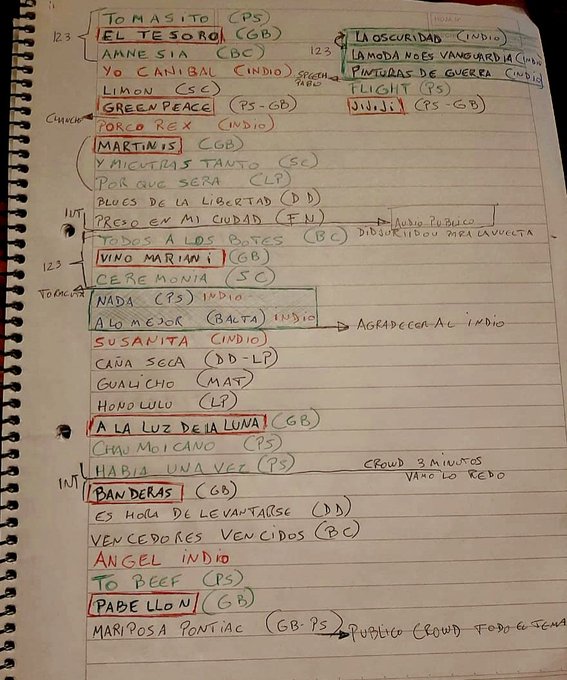 TOMASITO (PS)
123 EL TESORO (GB)
AMNESIA (BC)
YO CANIBAL (INDIO)
LIMON (SC)
CHANCHO GREENPEACE (PS-GB)
PORCO REX (INDIO)
MARTINIS (GB)
Y MIENTRAS TANTO (SC)
POR QUE SERA (LP)
BLUES DE LA LIBERTAD (DD)
INT PRESO EN MI CIUDAD (FN) AUDIO PUBLICO
TODOS A LOS BOTES (BC) PARA LA VUELTA
123 VINO MARIANI (GB)
CEREMONIA (SC)
NADA (PS) INDIO
A LO MEJOR (BALTA) INDIO AGRADECER AL INDIO
SUSANITA (INDIO)
CAÑA SECA (DD-LP)
GUALICHO (MAT)
HONOLULU (LP)
A LA LUZ DE LA LUNA (GB)
CHAU MOICANO (PS)
HABIA UNA VEZ (PS) CROWD 3 MINUTOS
INT VAMO LO REDO
BANDERAS (GB)
ES HORA DE LEVANTARSE (DD)
VENCEDORES VENCIDOS (BC)
ANGEL INDIO
TO BEEF (PS)
PABELLON (GB)
MARIPOSA PONTIAC (GB-PS) PUBLICO CROWD TODO EL TEMA
LA OSCURIDAD (INDIO)
123 LA MODA NO ES VANGUARDIA (INDIO
SPEECH PABLO PINTURAS DE GUERRA (INDIO)
FLIGHT (PS)
JIJIJI (PS-GB)